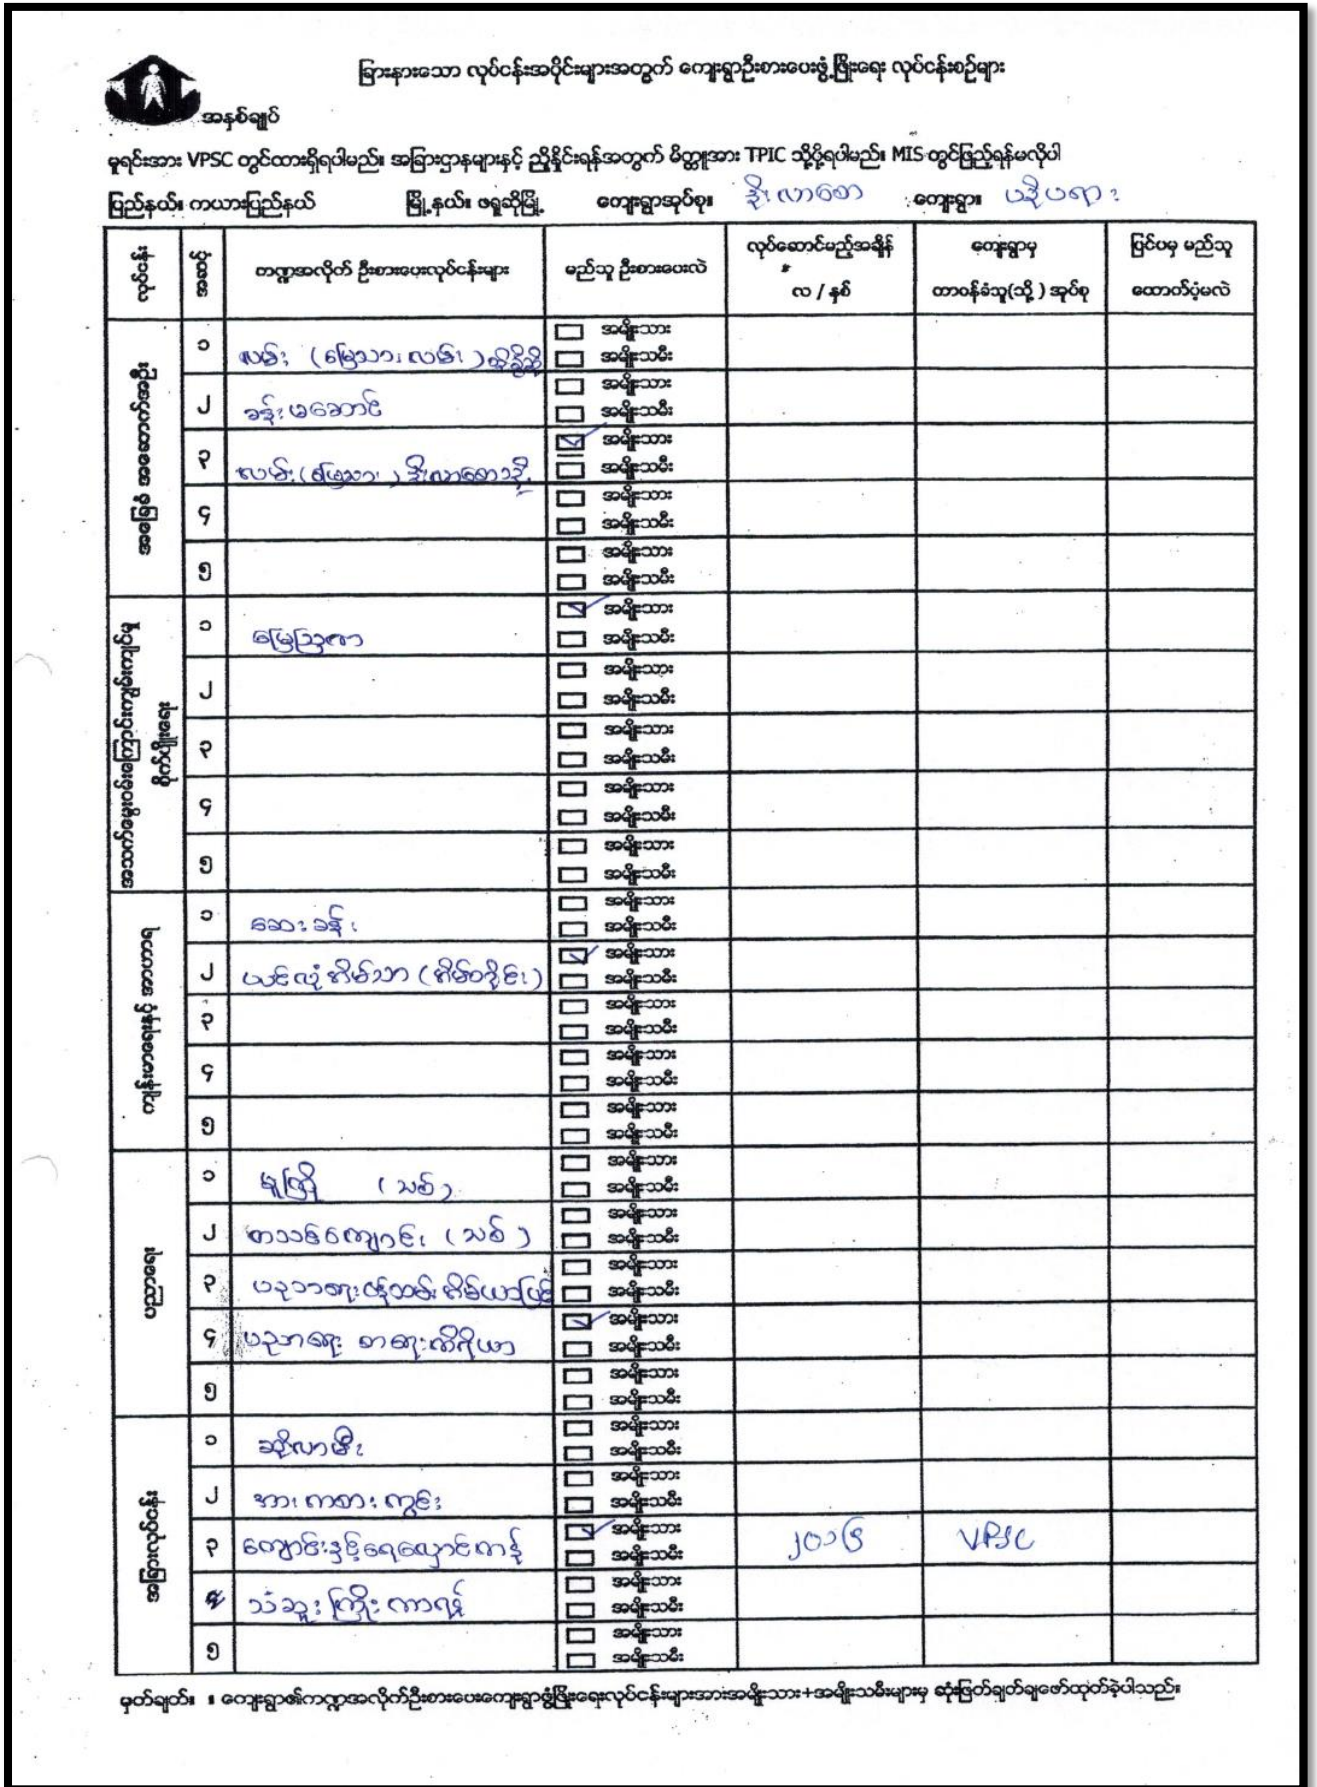 ခြားနားသော လုပ်ငန်းအပိုင်းများအတွက် ကျေးရွာဦးစားပေးဖွံ့ဖြိုးရေး လုပ်ငန်းစဉ်များ
အနှစ်ချုပ်
မူရင်းအား VPSC တွင်ထားရှိရပါမည်။ အခြားဌာနများနှင့် ညှိနှိုင်းရန်အတွက် မိတ္တူအား TPIC သို့ပို့ရပါမည်။ MIS တွင်ဖြည့်ရန်မလိုပါ
ပြည်နယ်။ ကယားပြည်နယ် မြို့နယ်။ ဖရူဆိုမြို့ ကျေးရွာအုပ်စု။ ဒိုးလာစော ကျေးရွာ။ ပဒိုပရား
လုပ်ငန်း အဆင့် ကဏ္ဍအလိုက် ဦးစားပေးလုပ်ငန်းများ မည်သူ ဦးစားပေးလဲ လုပ်ဆောင်မည့်အချိန် လ / နှစ် ကျေးရွာမှ တာဝန်ခံသူ(သို့) အုပ်စု ပြင်ပမှ မည်သူ ထောက်ပံ့မလဲ
အခြေခံ အဆောက်အဦး
၁ လမ်း (မြေသားလမ်း) အမျိုးသား
အမျိုးသမီး
၂ ခန်းမဆောင် အမျိုးသား
အမျိုးသမီး
၃ လမ်း (မြေသား) ဒိုးလာစော အမျိုးသား
အမျိုးသမီး
၄ အမျိုးသား
အမျိုးသမီး
၅ အမျိုးသား
အမျိုးသမီး
အသက်မွေးဝမ်းကြောင်း
စိုက်ပျိုးရေး
၁ မြေဩဇာ အမျိုးသား
အမျိုးသမီး
၂ အမျိုးသား
အမျိုးသမီး
၃ အမျိုးသား
အမျိုးသမီး
၄ အမျိုးသား
အမျိုးသမီး
၅ အမျိုးသား
အမျိုးသမီး
ကျန်းမာရေးနှင့် အာဟာရ
၁ ဆေးခန်း အမျိုးသား
အမျိုးသမီး
၂ ယင်လုံအိမ်သာ (အိမ်တိုင်း) အမျိုးသား
အမျိုးသမီး
၃ အမျိုးသား
အမျိုးသမီး
၄ အမျိုးသား
အမျိုးသမီး
၅ အမျိုးသား
အမျိုးသမီး
ပညာရေး
၁ မူကြို (သစ်) အမျိုးသား
အမျိုးသမီး
၂ စာသင်ကျောင်း (သစ်) အမျိုးသား
အမျိုးသမီး
၃ ပညာရေးဝန်ထမ်းအိမ်ယာပြင် အမျိုးသား
အမျိုးသမီး
၄ ပညာရေး စာရေးကိရိယာ အမျိုးသား
အမျိုးသမီး
၅ အမျိုးသား
အမျိုးသမီး
အခြားလုပ်ငန်း
၁ ဆိုလာမီး အမျိုးသား
အမျိုးသမီး
၂ အားကစားကွင်း အမျိုးသား
အမျိုးသမီး
၃ ကျောင်းနှင့်ရေလှောင်ကန် အမျိုးသား ၂၀၁၆ VPSC
အမျိုးသမီး
၄ သံဆူးကြိုးကာရန် အမျိုးသား
အမျိုးသမီး
၅ အမျိုးသား
အမျိုးသမီး
မှတ်ချက်။ ။ ကျေးရွာ၏ကဏ္ဍအလိုက်ဦးစားပေးကျေးရွာဖွံ့ဖြိုးရေးလုပ်ငန်းများအားအမျိုးသား+အမျိုးသမီးများမှ ဆုံးဖြတ်ချက်ချဖော်ထုတ်ခဲ့ပါသည်။